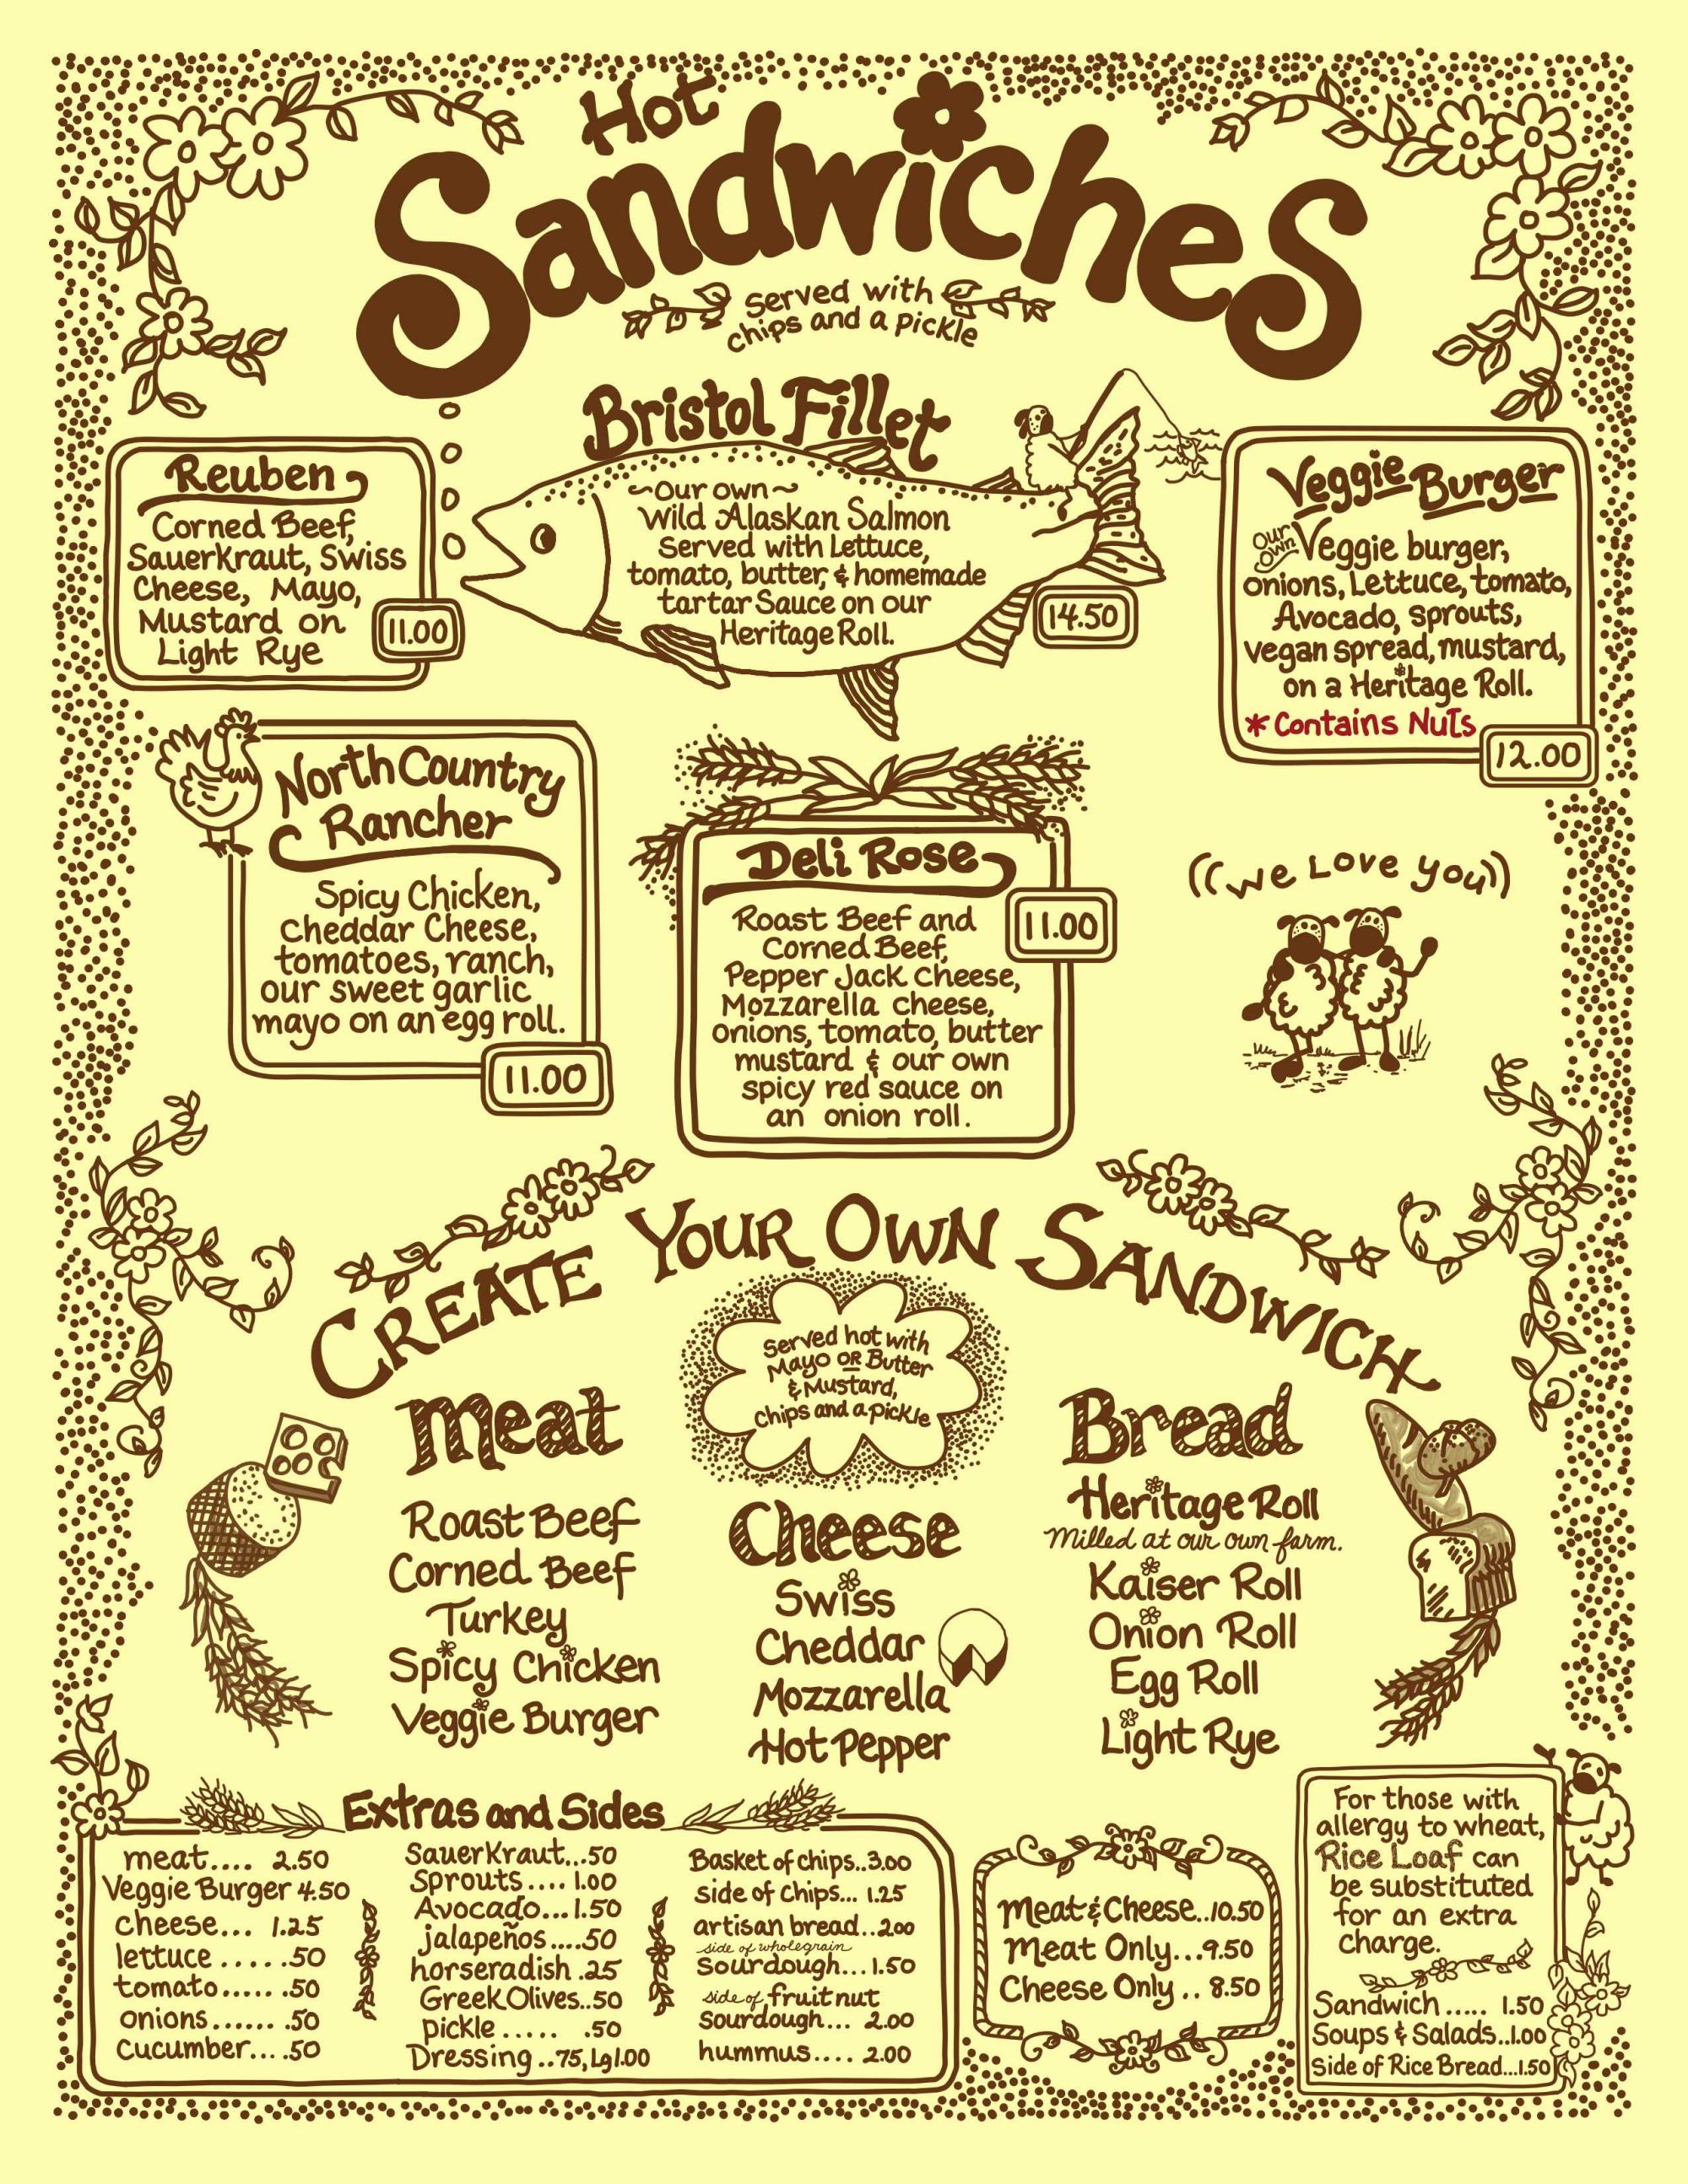 Hot
Sandwiches
Served with
chips and a pickle
Reuben
Corned Beef,
Sauerkraut, Swiss
Cheese, Mayo,
Mustard on
Light Rye
11.00
Bristol Fillet
~Our own~
Wild Alaskan Salmon
Served with Lettuce,
tomato, butter, & homemade
tartar Sauce on our
Heritage Roll.
14.50
Veggie Burger
Our own Veggie burger,
onions, Lettuce, tomato,
Avocado, sprouts,
vegan spread, mustard,
on a Heritage Roll.
* Contains Nuts
12.00
North Country
Rancher
Spicy Chicken,
Cheddar Cheese,
tomatoes, ranch,
our sweet garlic
mayo on an egg roll.
11.00
Deli Rose
Roast Beef and
Corned Beef,
Pepper Jack Cheese,
Mozzarella cheese,
onions, tomato, butter
mustard & our own
spicy red sauce on
an onion roll.
11.00
((we Love you))
CREATE YOUR OWN SANDWICH
Served hot with
Mayo OR Butter
& Mustard,
Chips and a pickle
Meat
Roast Beef
Corned Beef
Turkey
Spicy Chicken
Veggie Burger
Cheese
Swiss
Cheddar
Mozzarella
Hot Pepper
Bread
Heritage Roll
Milled at our own farm.
Kaiser Roll
Onion Roll
Egg Roll
Light Rye
Extras and Sides
meat.... 2.50
Veggie Burger 4.50
cheese... 1.25
lettuce .....50
tomato..... .50
onions...... .50
Cucumber... .50
Sauerkraut...50
Sprouts.... 1.00
Avocado...1.50
jalapeños ....50
horseradish .25
Greek Olives..50
pickle..... .50
Dressing..75, Lg1.00
Basket of chips..3.00
side of chips... 1.25
artisan bread..2.00
side of wholegrain
Sourdough...1.50
side of fruit nut
sourdough... 2.00
hummus.... 2.00
Meat & Cheese..10.50
Meat Only...9.50
Cheese Only.. 8.50
For those with
allergy to wheat,
Rice Loaf can
be substituted
for an extra
charge.
Sandwich..... 1.50
Soups & Salads..1.00
Side of Rice Bread...1.50